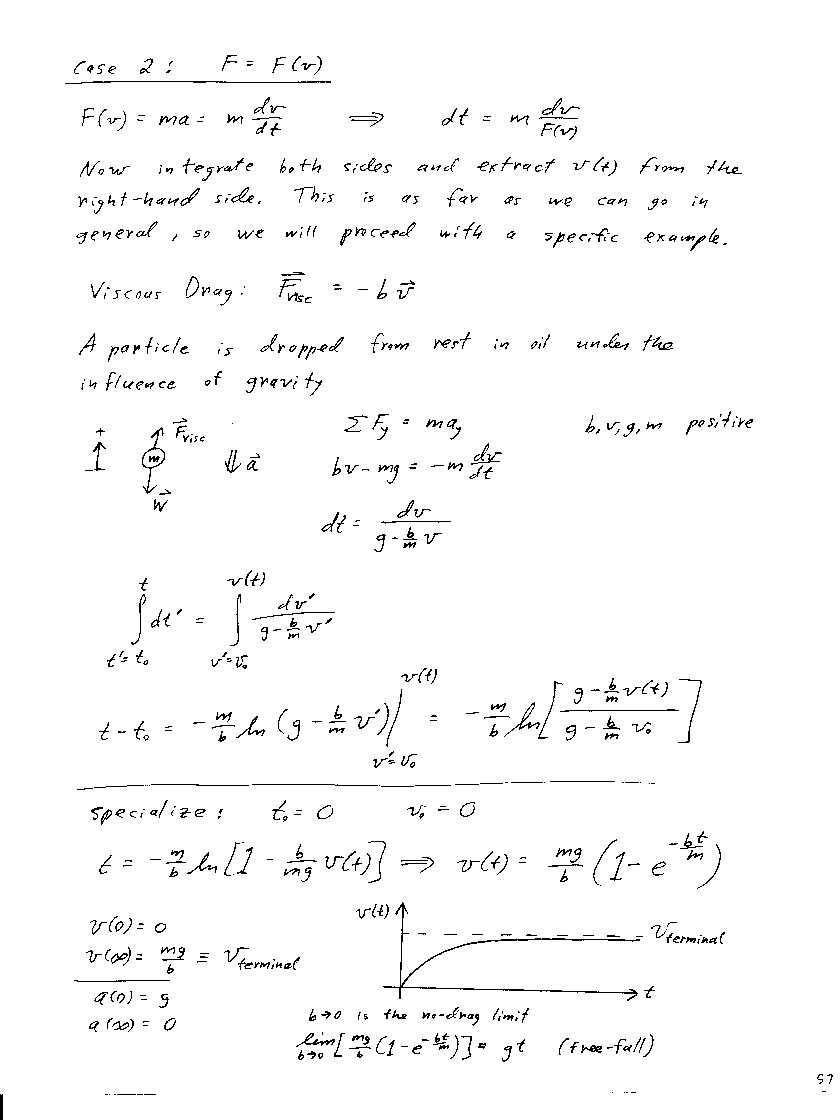 Case 2 : F = F(v)
F(v) = ma = m dv/dt ⟹ dt = m dv/F(v)
Now integrate both sides and extract v(t) from the
right-hand side. This is as far as we can go in
general, so we will proceed with a specific example.
Viscous Drag: F⃗visc = -b v⃗
A particle is dropped from rest in oil under the
influence of gravity
+ F⃗visc m a⃗ W⃗
ΣFy = may b, v, g, m positive
bv - mg = -m dv/dt
dt = dv / (g - b/m v)
∫_{t'=t₀}^{t} dt' = ∫_{v'=v₀}^{v(t)} dv' / (g - b/m v')
t - t₀ = -m/b ln (g - b/m v') |_{v'=v₀}^{v(t)} = -m/b ln[ (g - b/m v(t)) / (g - b/m v₀) ]
Specialize : t₀ = 0 v₀ = 0
t = -m/b ln[1 - b/mg v(t)] ⟹ v(t) = mg/b (1 - e^{-bt/m})
v(0) = 0
v(∞) = mg/b ≡ Vterminal
a(0) = g
a(∞) = 0
v(t) Vterminal
t
b→0 is the no-drag limit
lim_{b→0} [mg/b (1 - e^{-bt/m})] = gt (free-fall)
57